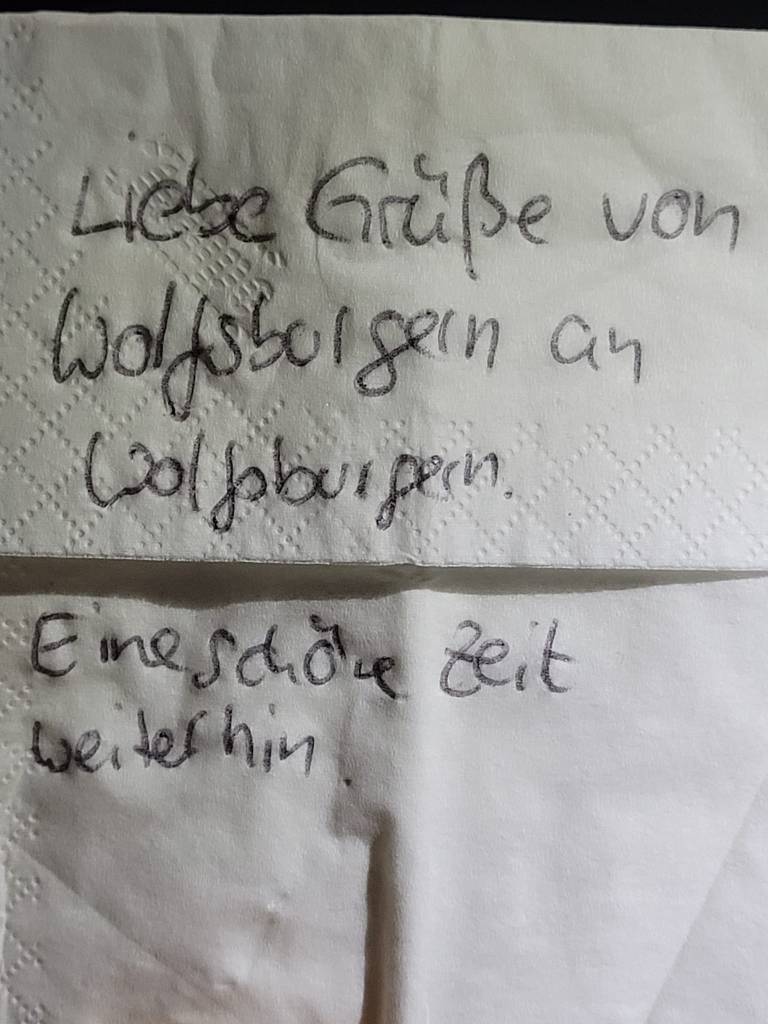 Liebe Grüße von
Wolfsburgern an
Wolfsburgern.
Eine schöne Zeit
weiterhin.